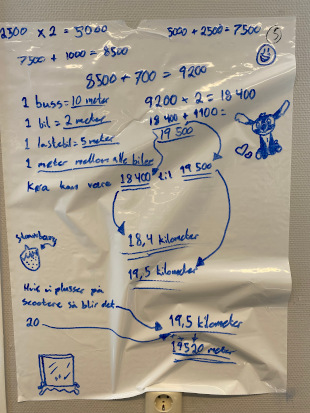 2500 x 2 = 5000
5000 + 2500 = 7500
5
7500 + 1000 = 8500
8500 + 700 = 9200
1 buss = 10 meter
9200 x 2 = 18 400
1 bil = 2 meter
18 400 + 1100 =
19 500
1 lastebil = 5 meter
1 meter mellom alle biler
Køa kan være 18 400 til 19 500
18,4 kilometer
19,5 kilometer
strawberry
Hvis vi plusser på
scootere så blir det
19,5 kilometer
20
19520 meter